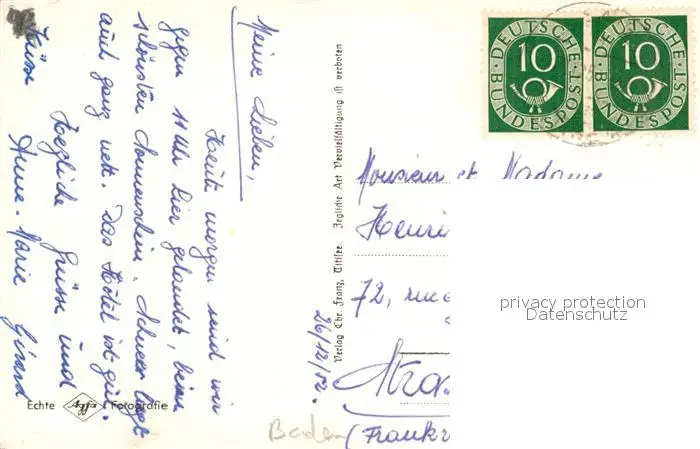 Meine Lieben,
Heute morgen sind wir
gegen 11 Uhr hier gelandet, beim
schönsten Sonnenschein. Schnee liegt
auch ganz nett. Das Hôtel ist gut.
Herzliche Grüsse und
Küsse Anne-Marie Girard
Echte Agfa Fotografie
Verlag Chr. Franz, Titisee. Jegliche Art Vervielfältigung ist verboten
26/12/52.
DEUTSCHE BUNDESPOST 10
DEUTSCHE BUNDESPOST 10
Monsieur et Madame
Henri
72, rue
Stra
(Frankr
Baden
privacy protection
Datenschutz